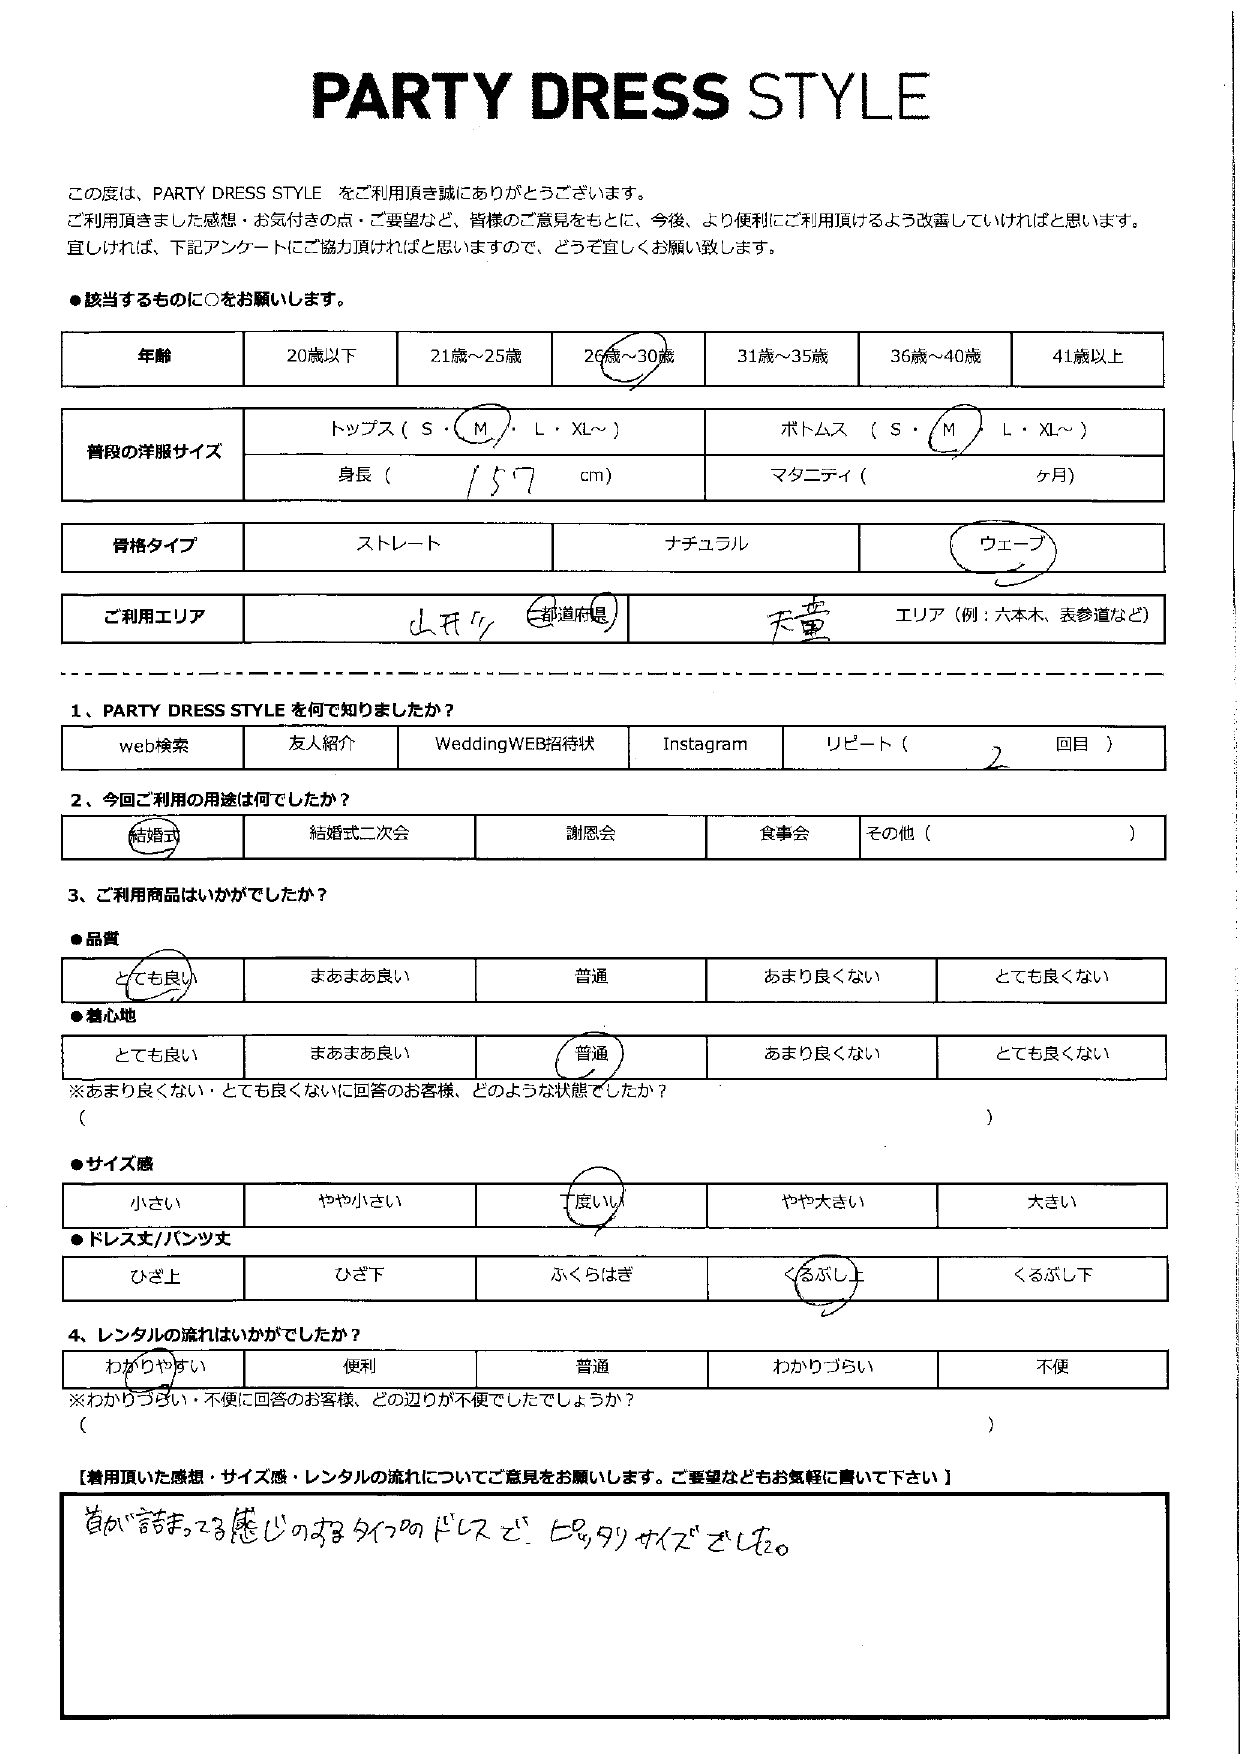 PARTY DRESS STYLE
この度は、PARTY DRESS STYLE　をご利用頂き誠にありがとうございます。
ご利用頂きました感想・お気付きの点・ご要望など、皆様のご意見をもとに、今後、より便利にご利用頂けるよう改善していければと思います。
宜しければ、下記アンケートにご協力頂ければと思いますので、どうぞ宜しくお願い致します。
●該当するものに○をお願いします。
年齢 20歳以下 21歳～25歳 26歳～30歳 31歳～35歳 36歳～40歳 41歳以上
普段の洋服サイズ トップス ( S ・ M ・ L ・ XL～ ) ボトムス ( S ・ M ・ L ・ XL～ )
身長 ( 157 cm) マタニティ ( ヶ月)
骨格タイプ ストレート ナチュラル ウェーブ
ご利用エリア 山形 都道府県 天童 エリア（例：六本木、表参道など）
1、PARTY DRESS STYLE を何で知りましたか？
web検索 友人紹介 WeddingWEB招待状 Instagram リピート ( 2 回目 )
2、今回ご利用の用途は何でしたか？
結婚式 結婚式二次会 謝恩会 食事会 その他 ( )
3、ご利用商品はいかがでしたか？
●品質
とても良い まあまあ良い 普通 あまり良くない とても良くない
●着心地
とても良い まあまあ良い 普通 あまり良くない とても良くない
※あまり良くない・とても良くないに回答のお客様、どのような状態でしたか？
( )
●サイズ感
小さい やや小さい 丁度いい やや大きい 大きい
●ドレス丈/パンツ丈
ひざ上 ひざ下 ふくらはぎ くるぶし上 くるぶし下
4、レンタルの流れはいかがでしたか？
わかりやすい 便利 普通 わかりづらい 不便
※わかりづらい・不便に回答のお客様、どの辺りが不便でしたでしょうか？
( )
【着用頂いた感想・サイズ感・レンタルの流れについてご意見をお願いします。ご要望などもお気軽に書いて下さい 】
首が詰まってる感じのするタイプのドレスで、ピッタリサイズでした。